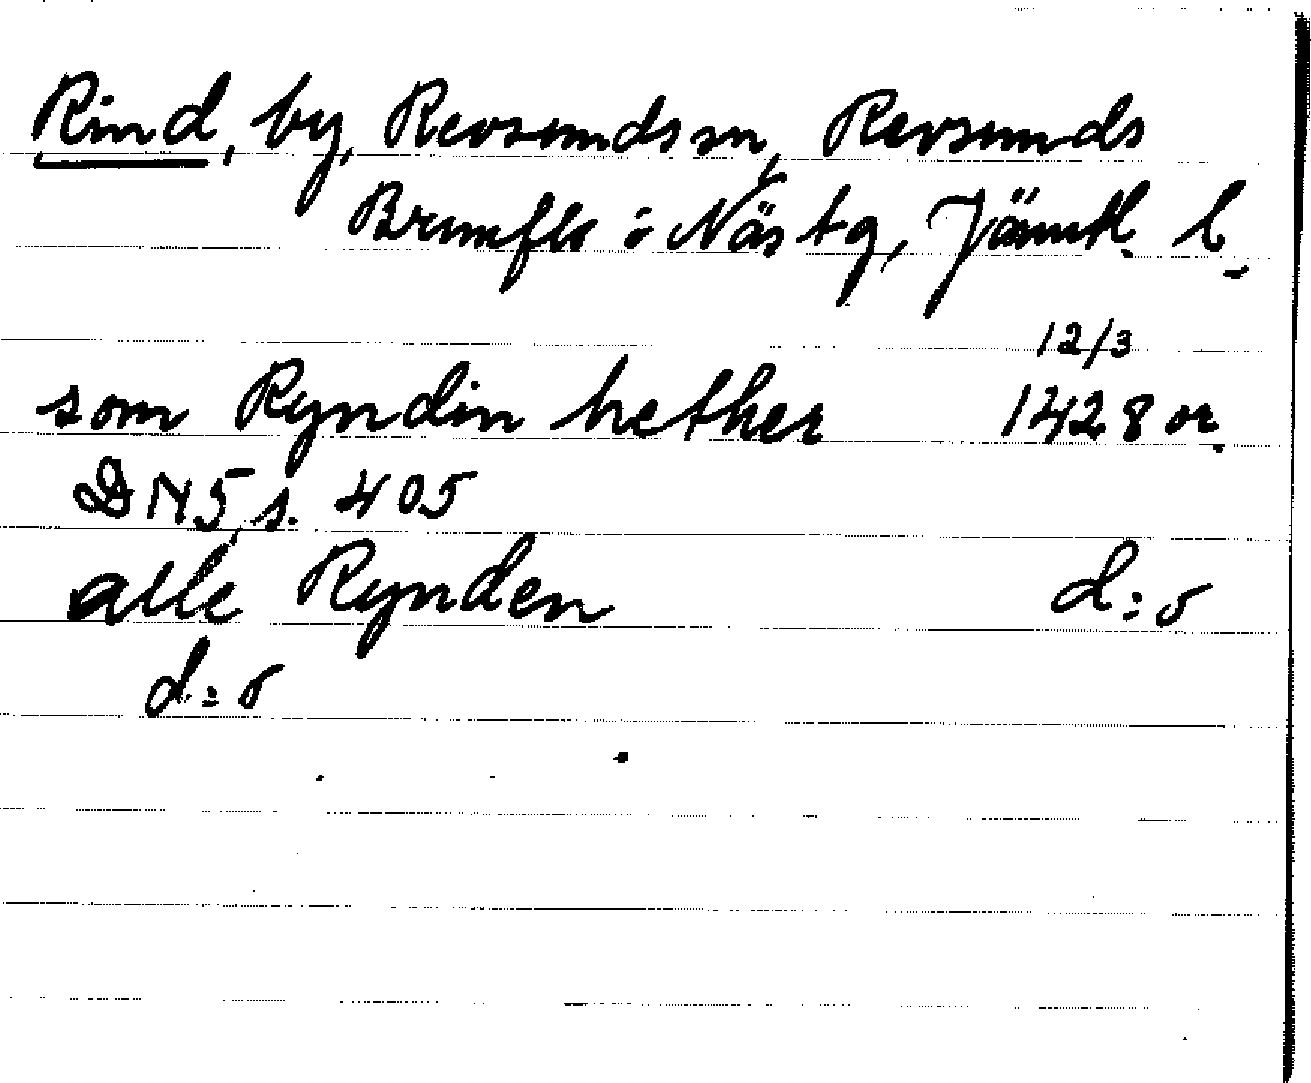 Rind, by, Revsunds sn, Revsunds
Brunflo o Näs tg, Jämtl. l.
12/3
som Ryndin hether 1428 or.
DN 5, s. 405
alle Rynden d:o
d:o